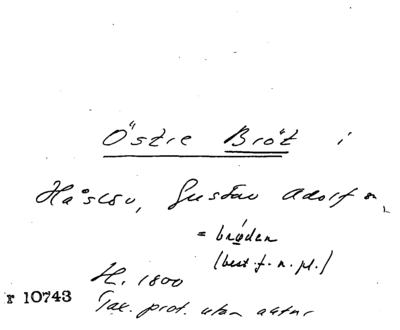 Östre Bröt i
Håslöv, Gustav Adolf s.
= bröden
(best. f. n. pl.)
H. 1800
r 10743
Tax. prot. utan